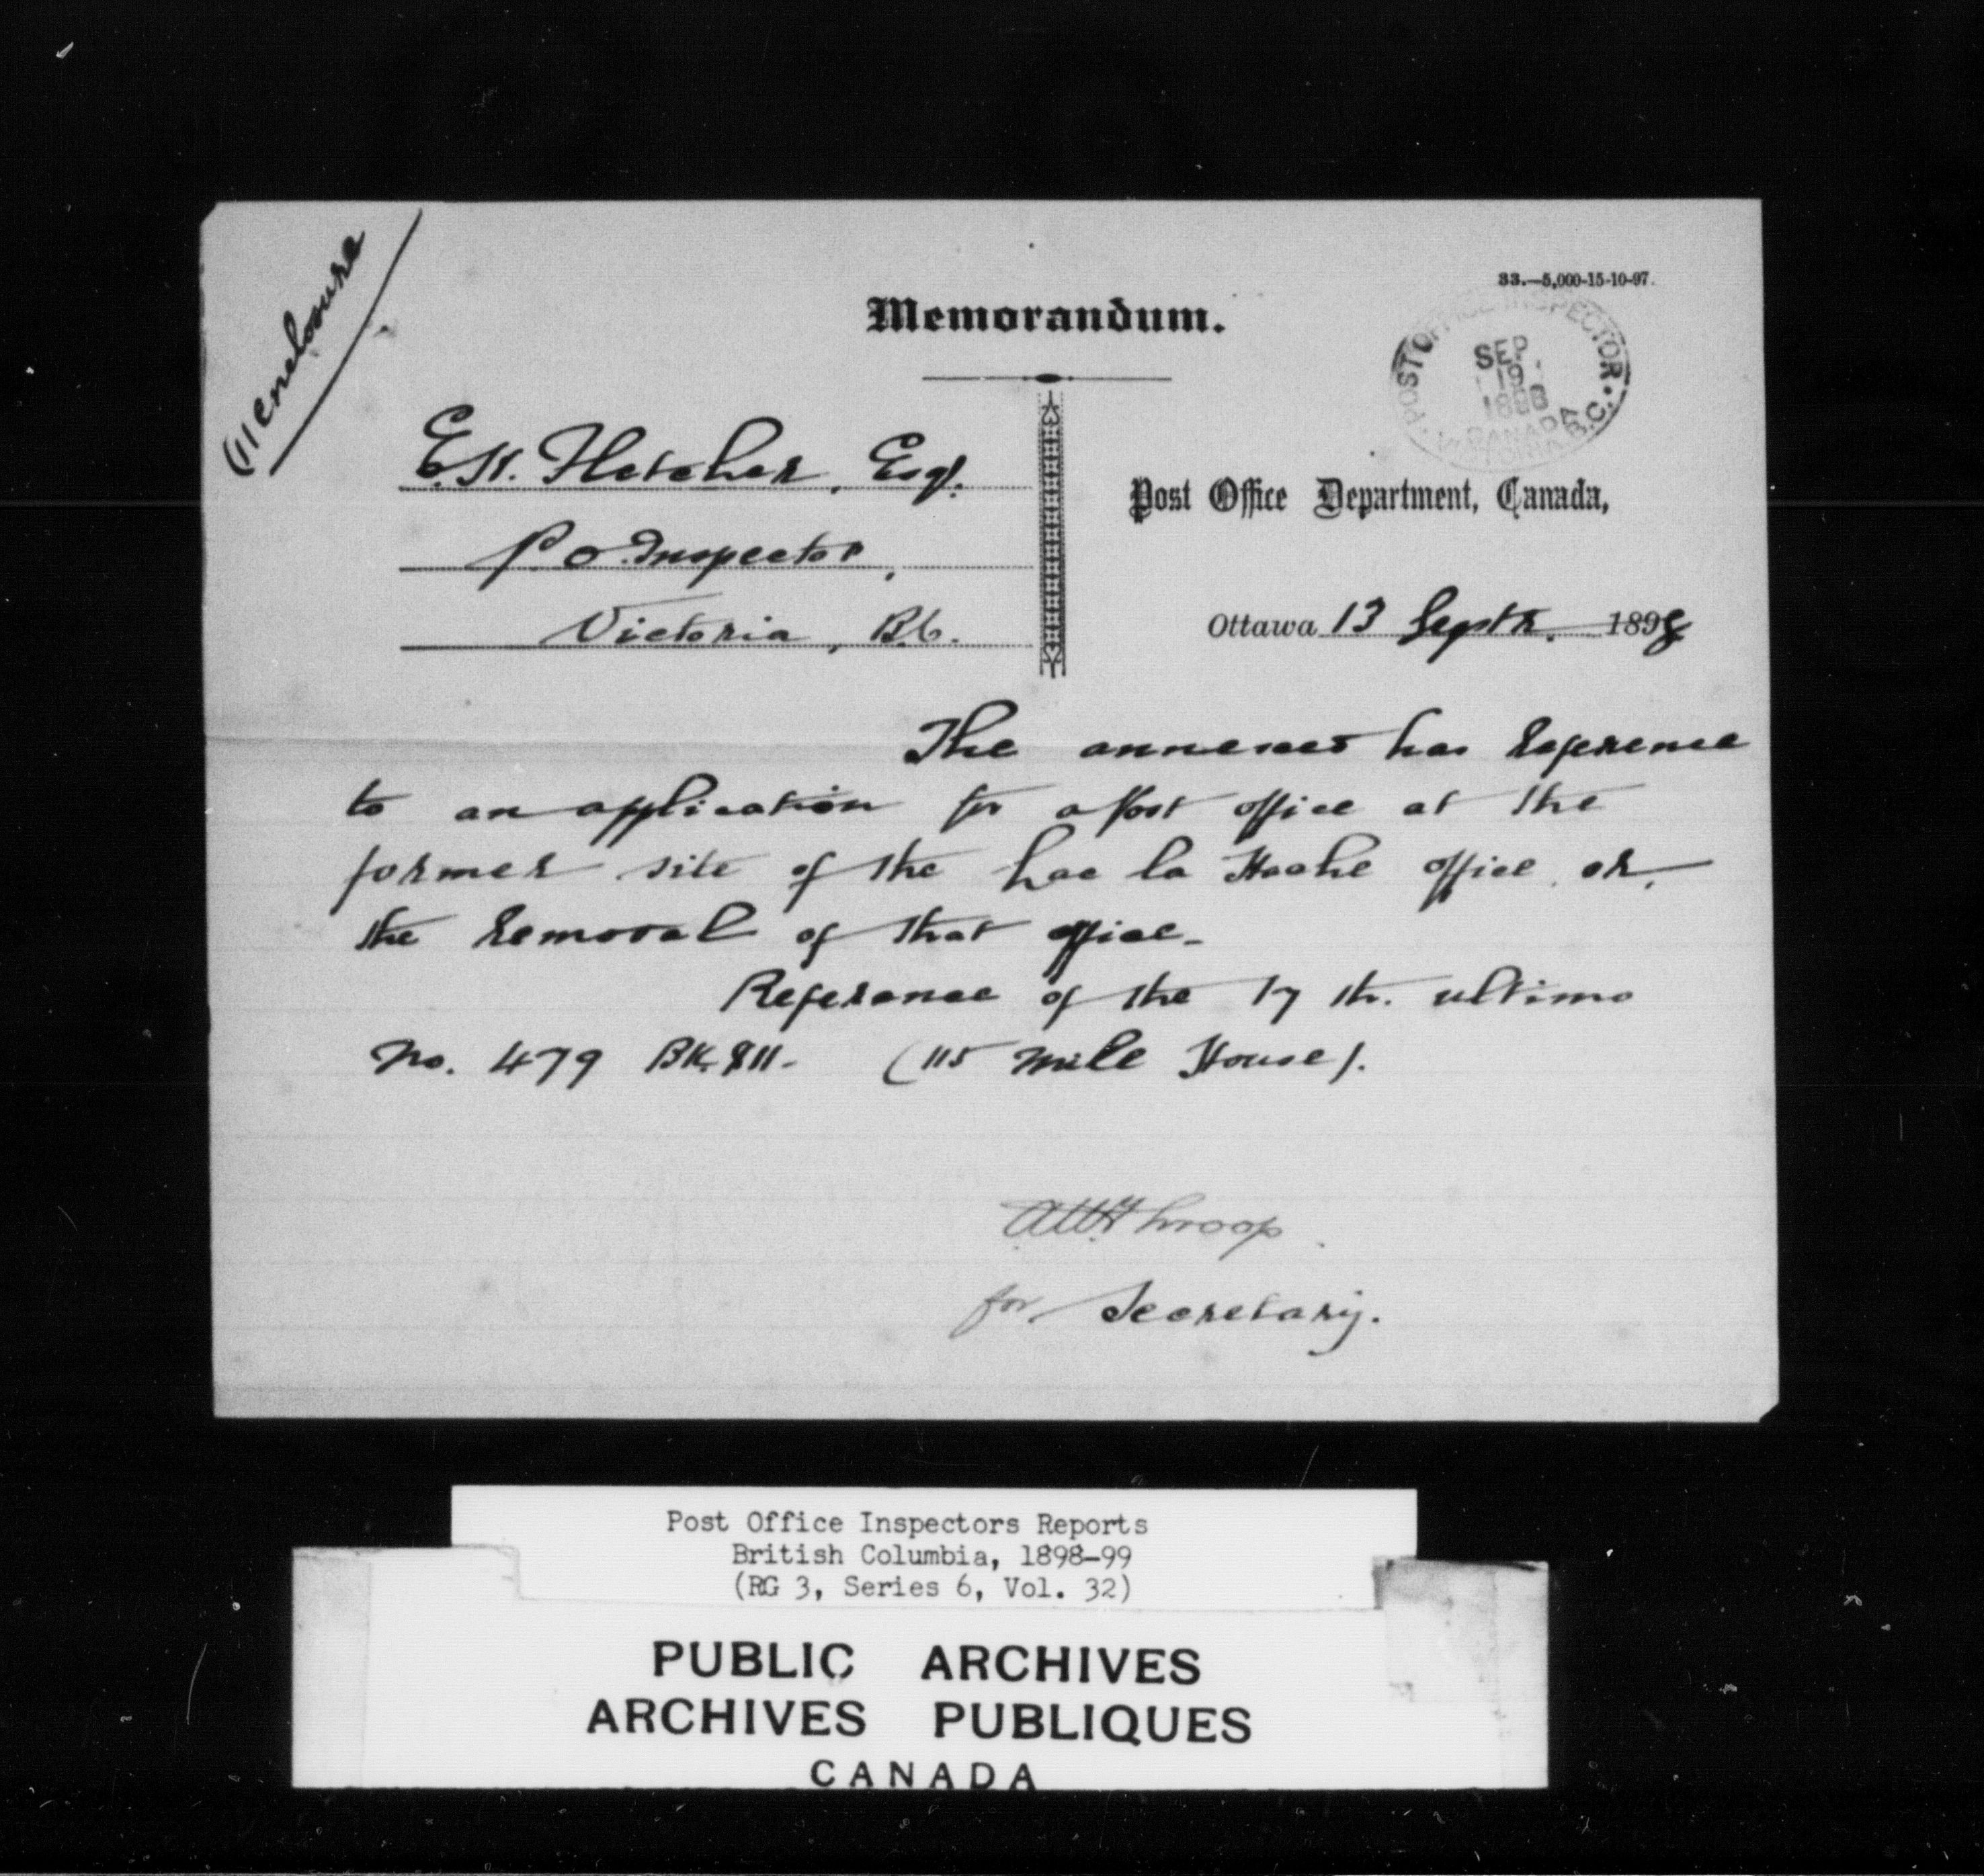 (1) enclosure
33.—5,000-15-10-97.
Memorandum.
POST OFFICE INSPECTOR
SEP
19
1898
CANADA
VICTORIA B.C.
E.H. Fletcher, Esq.
P.O. Inspector,
Victoria, B.C.
Post Office Department, Canada,
Ottawa 13 Septr. 1898
The annexed has reference
to an application for a Post office at the
former site of the Lac la Hache office or
the removal of that office.
Reference of the 17th. ultimo
No. 479 BK. 811. (115 Mile House).
A.W. Throop
for Secretary.
Post Office Inspectors Reports
British Columbia, 1898-99
(RG 3, Series 6, Vol. 32)
PUBLIC ARCHIVES
ARCHIVES PUBLIQUES
CANADA